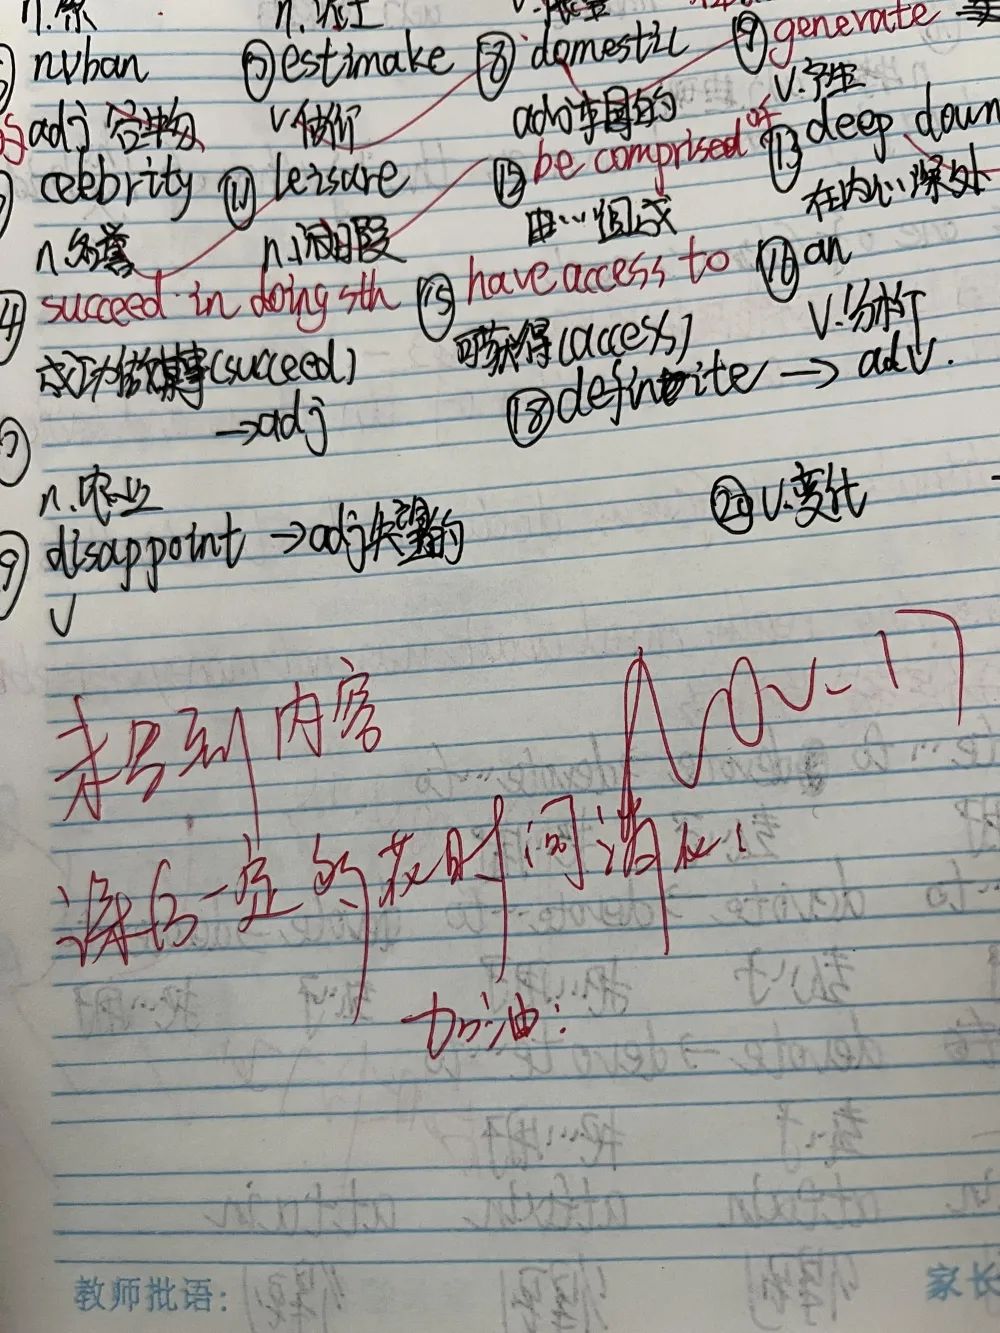 nvban ⑦estimake ⑧domestic ⑨generate
adj v.估价 adj本国的 v.产生
celebrity ⑪leisure ⑫be comprised of ⑬deep down
n.名誉 n.闲暇 由…组成 在内心深处
succeed in doing sth ⑮have access to ⑯an
成功做某事(succeed) 可获得(access) v.分析
→adj ⑱definite → adv.
n.农业
disappoint →adj失望的 ⑳v.变化
v
Nov. 17
未写到内容
课后一定的花时间消灰!
加油:
教师批语:
家长